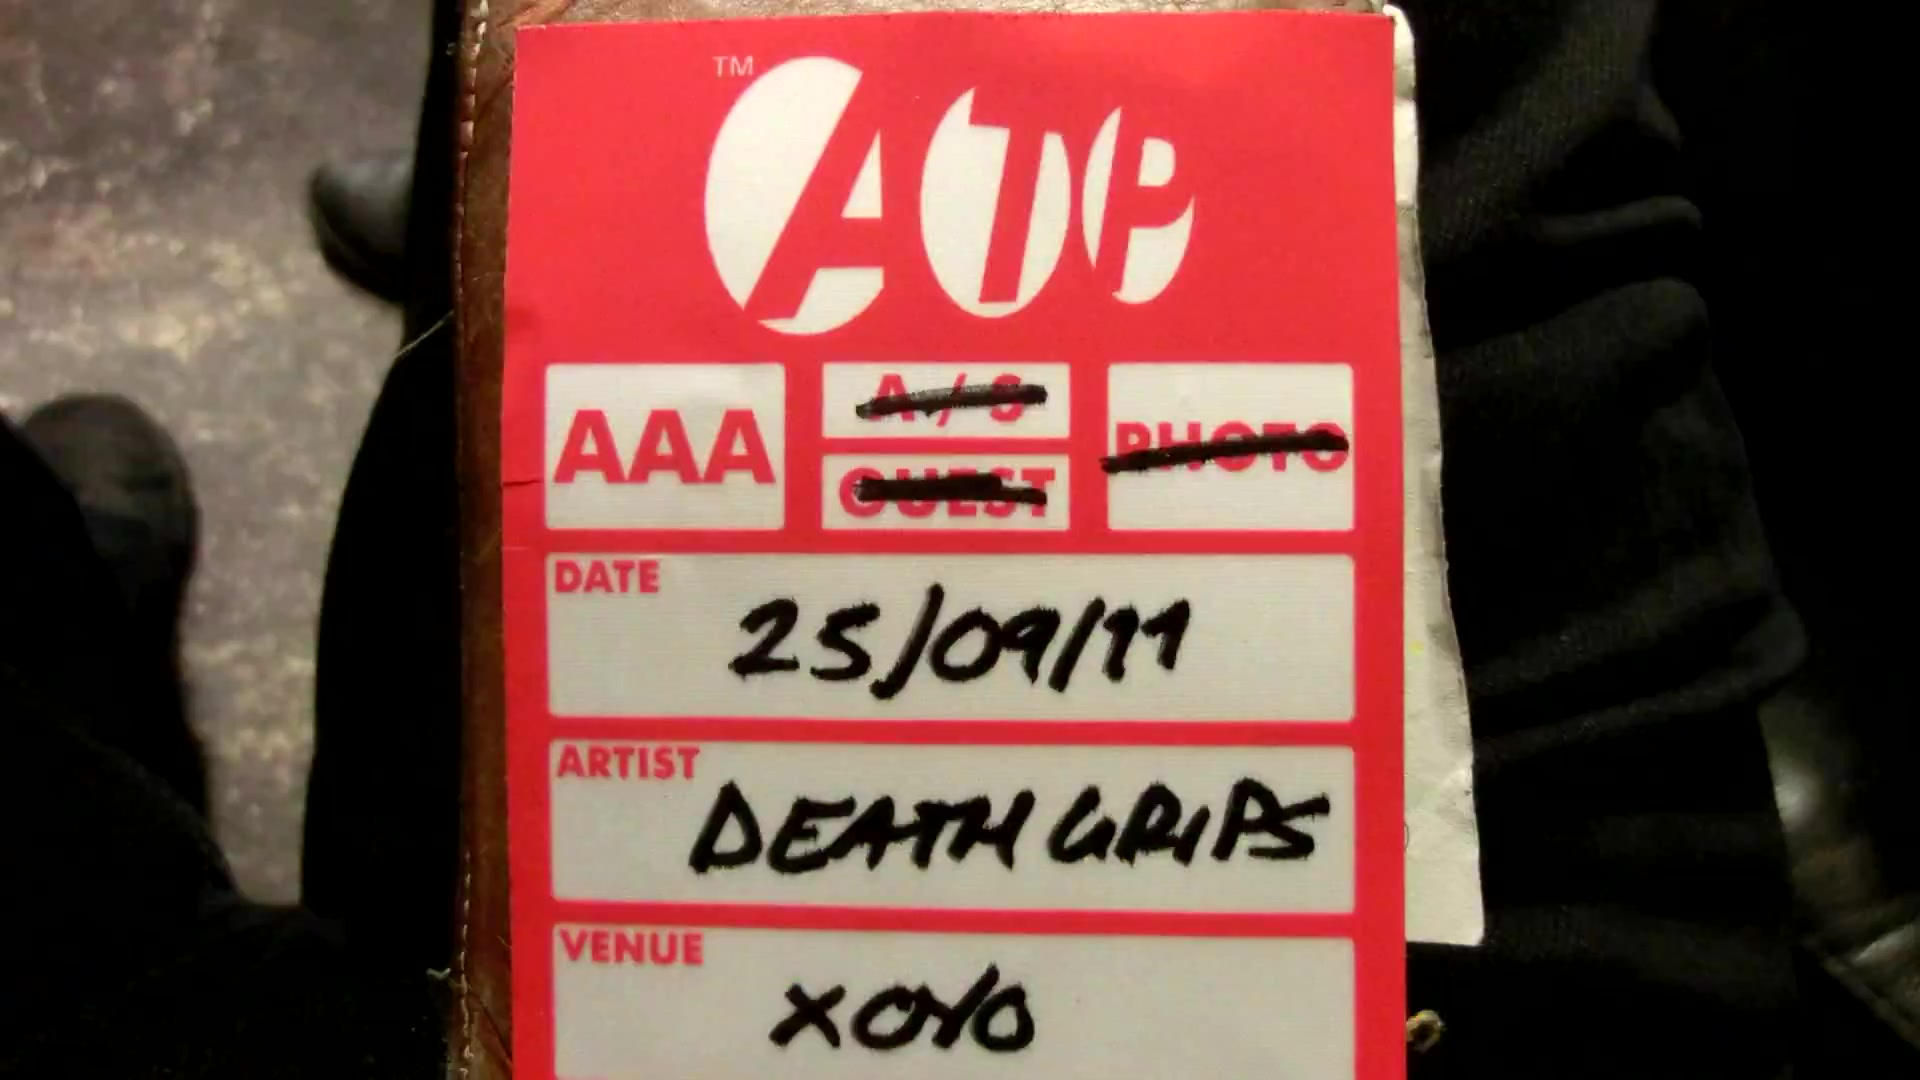 ™ ATP
AAA
A/S
GUEST
PHOTO
DATE
25/09/11
ARTIST
DEATH GRIPS
VENUE
XOYO